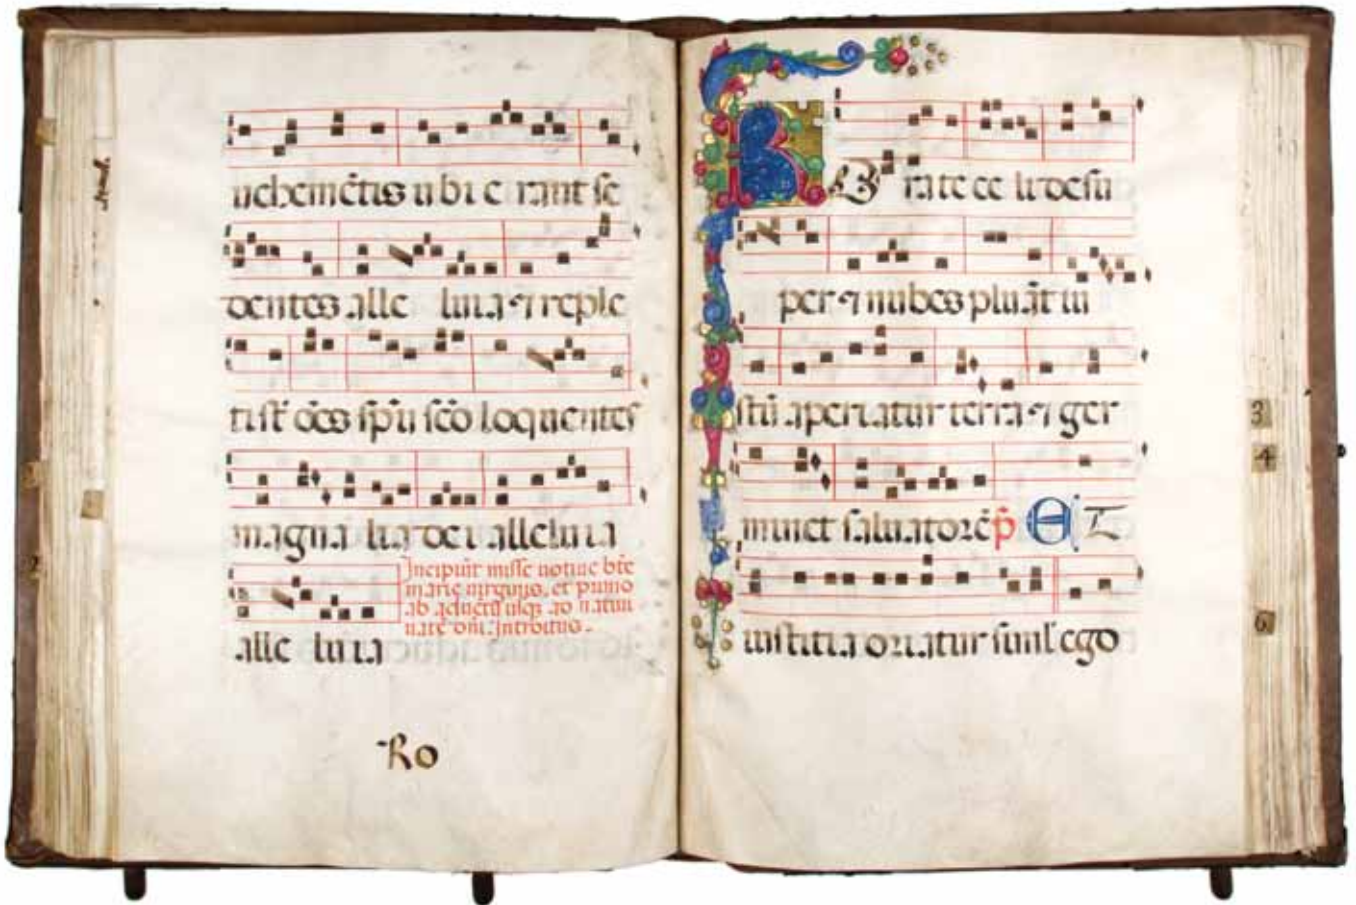 uehementis ubi erant se
dentes alle luia ⁊ reple
ti st̄ oēs sp̄u sc̄o loquentes
magna lia dei alleluia
Incipiūt misse uotiue bt̄e
marie uirginis. et primo
ab aduētu usq; ad natiui
tatē dn̄i. Introitus.
alle luia
Ro
Rorate celi desu
per ⁊ nubes pluāt iu
stū aperiatur terra ⁊ ger
minet saluatorē p̄s Et
iustitia oriatur siml̄ ego
3
4
6
2